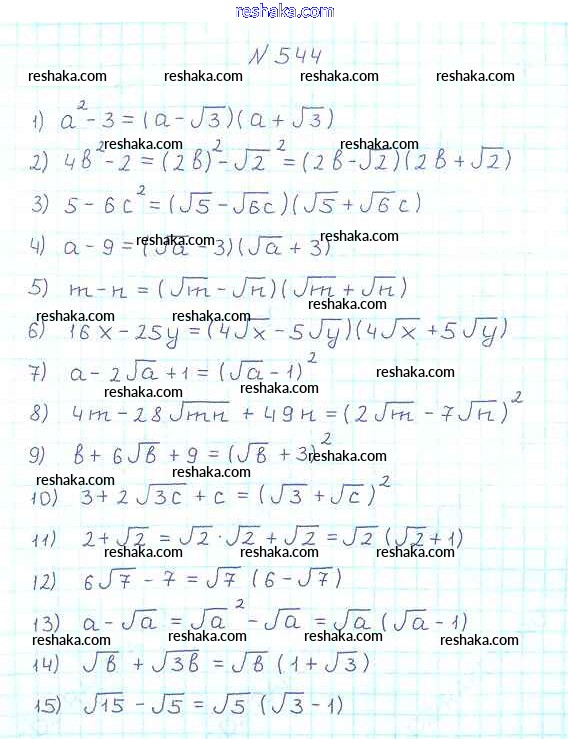 www.reshaka.com
N 544
reshaka.com reshaka.com reshaka.com reshaka.com
1) a² - 3 = (a - √3)(a + √3)
reshaka.com reshaka.com
2) 4в² - 2 = (2в)² - √2² = (2в - √2)(2в + √2)
3) 5 - 6c² = (√5 - √6c)(√5 + √6 c)
reshaka.com reshaka.com
4) a - 9 = (√a - 3)(√a + 3)
5) m - n = (√m - √n)(√m + √n)
reshaka.com reshaka.com reshaka.com
6) 16x - 25y = (4√x - 5√y)(4√x + 5√y)
7) a - 2√a + 1 = (√a - 1)²
reshaka.com
reshaka.com reshaka.com
8) 4m - 28√mn + 49n = (2√m - 7√n)²
reshaka.com
9) в + 6√в + 9 = (√в + 3)²
reshaka.com reshaka.com
10) 3 + 2√3c + c = (√3 + √c)²
11) 2 + √2 = √2 · √2 + √2 = √2 (√2 + 1)
reshaka.com reshaka.com reshaka.com
12) 6√7 - 7 = √7 (6 - √7)
13) a - √a = √a² - √a = √a (√a - 1)
reshaka.com reshaka.com reshaka.com reshaka.com
14) √в + √3в = √в (1 + √3)
reshaka.com reshaka.com reshaka.com
15) √15 - √5 = √5 (√3 - 1)